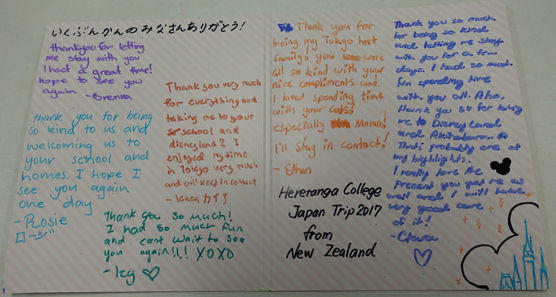 いくぶんかんのみなさんありがとう!
thankyou for letting
me stay with you
I had a great time!
hope to see you
again - Brenna
Thank you very much
for everything and
taking me to your
school and
disneyland! I
enjoyed my time
in Tokyo very much
and will keep in contact
thank you for being
so kind to us and
welcoming us to
your school and
homes. I hope I
see you again
one day
- Rosie
Thank you so much!
I had so much fun
and cant wait to see
you again!!! XOXO
Thank you for
being my Tokyo host
family you were
all so kind with your
nice compliments and
I loved spending time
with your cats!
especially Momo!
I'll stay in contact!
- Ethan
Hereranga College
Japan Trip 2017
from
New Zealand
Thank you so much
for being so kind
and letting me stay
with you for a few
days. I had so much
fun spending time
with you all. Also,
thank you so for taking
me to Disneyland
and Akihabara.
That's probably one of
my highlights.
I really love the
present you gave me as
well and I will take
very good care
of it!